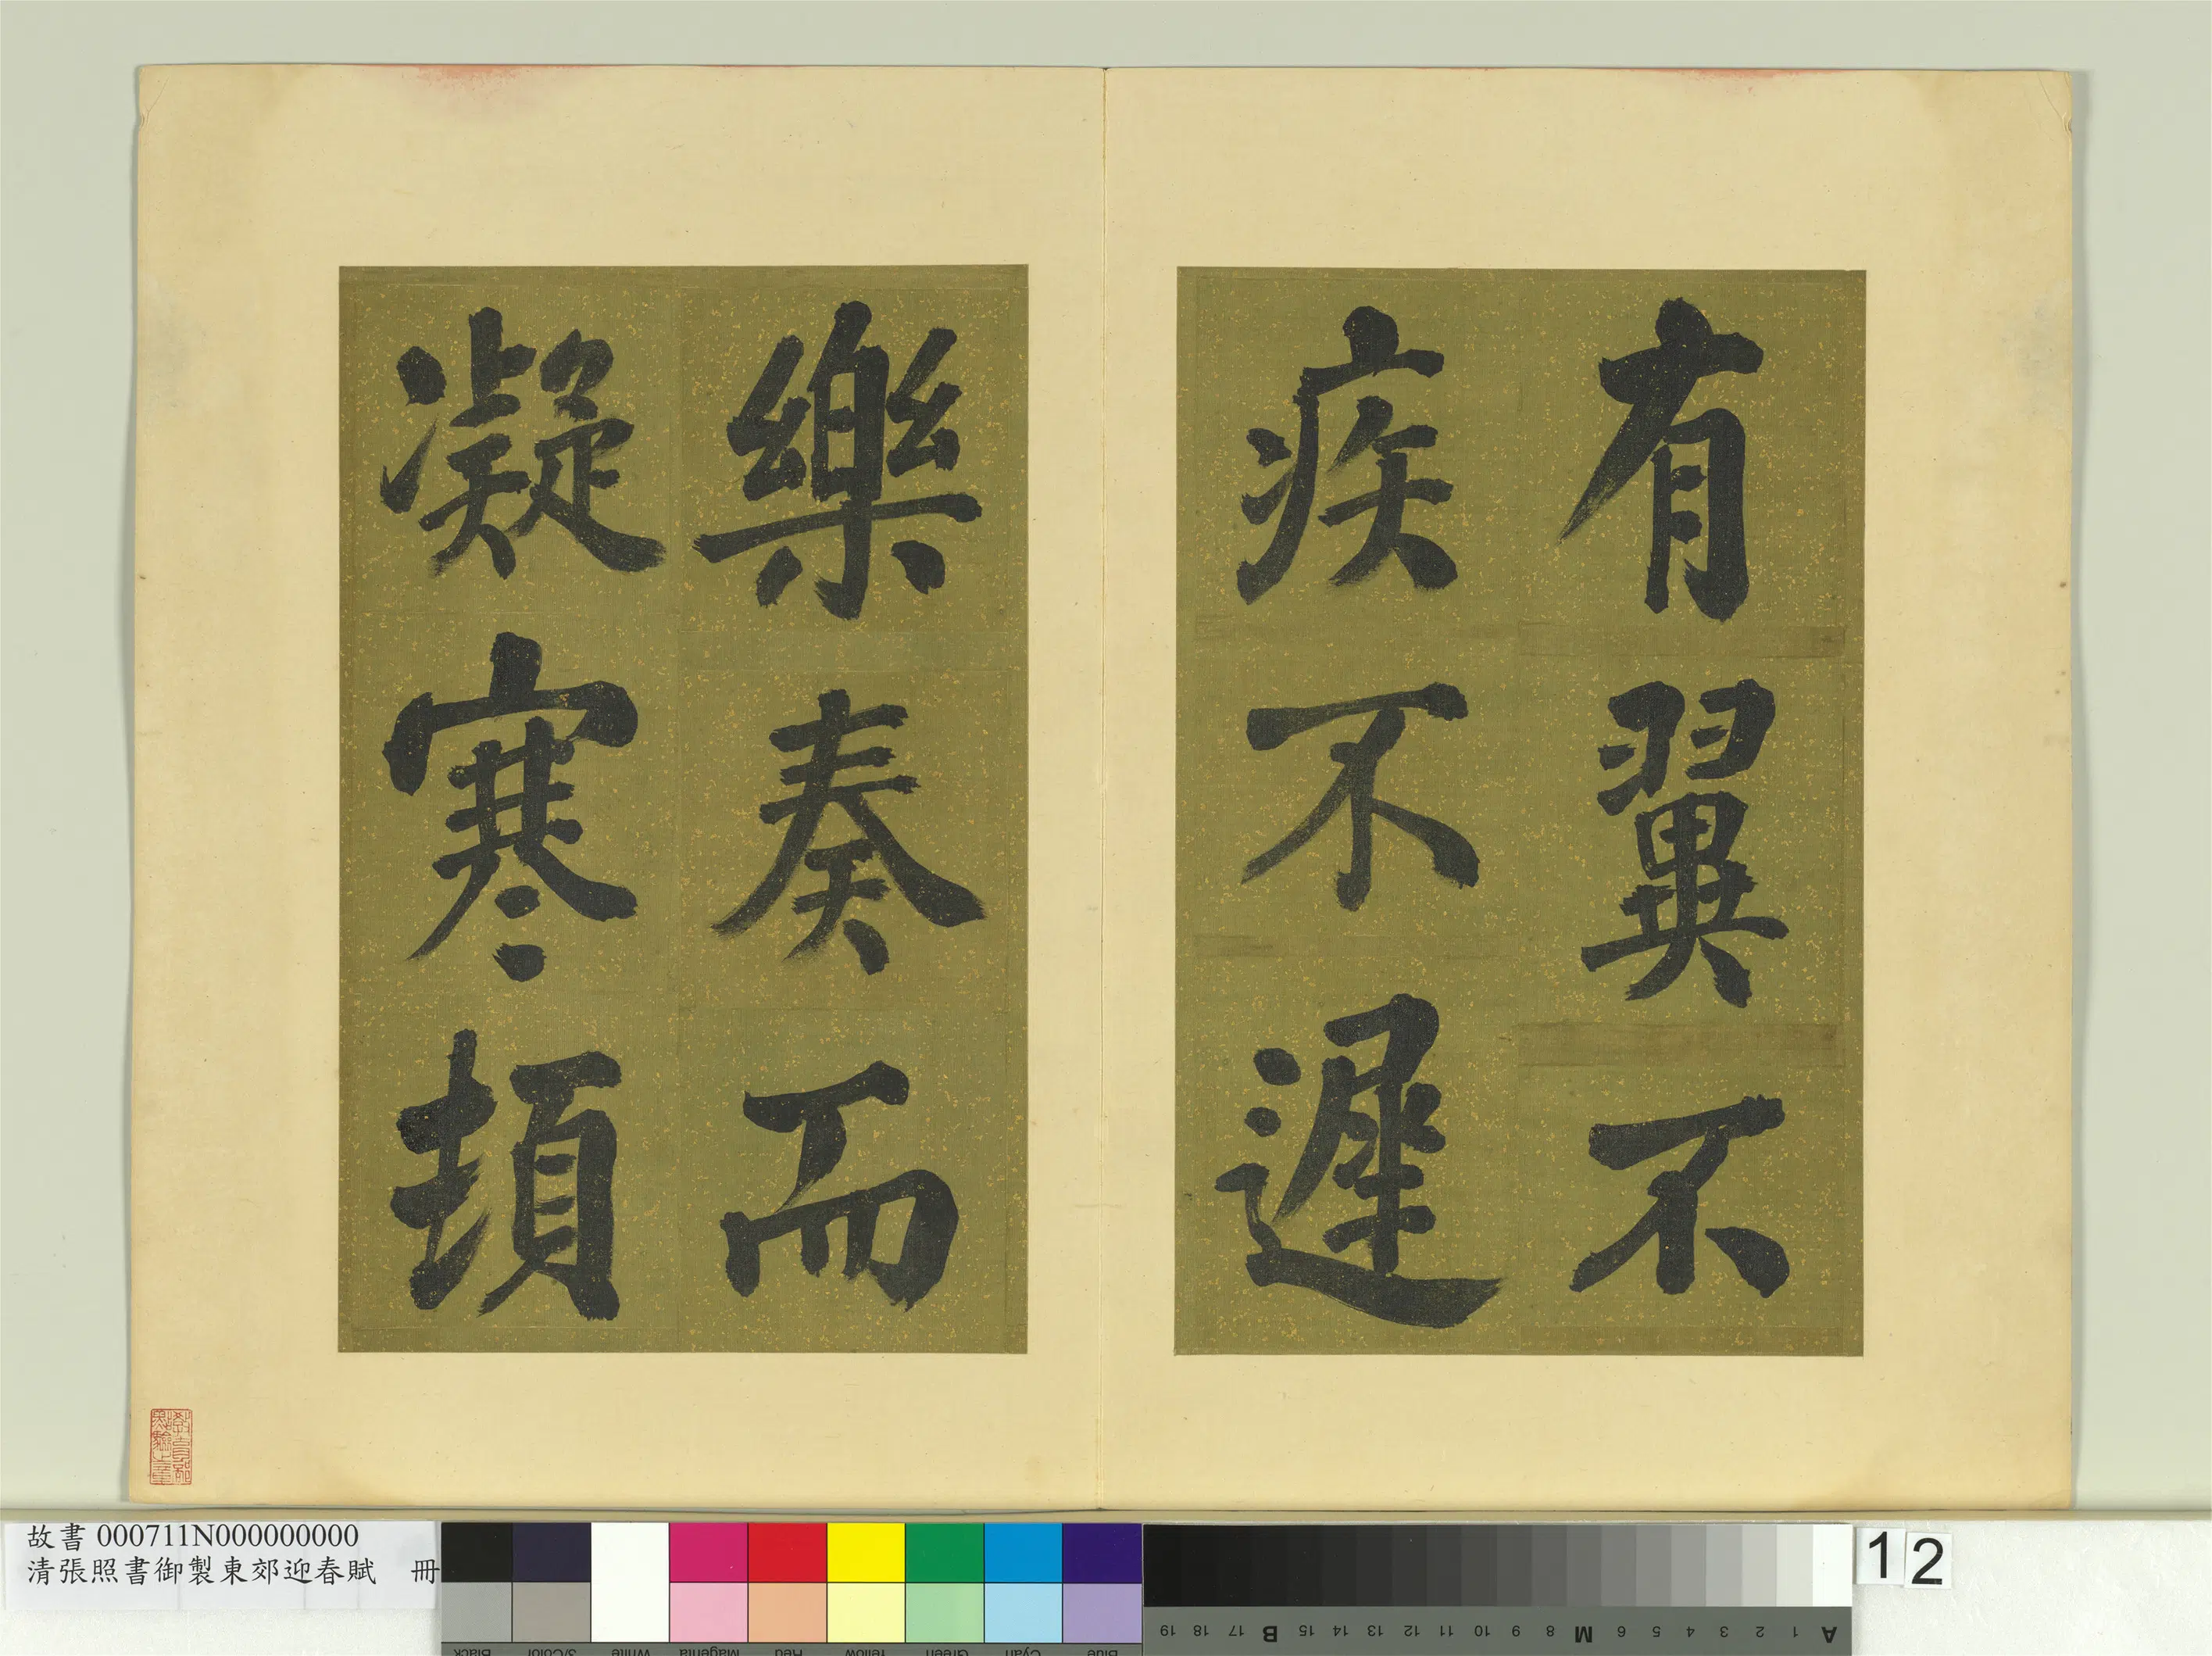 有翼不
疾不遲
樂奏而
凝寒頓
教育部
點驗之章
故書 000711N000000000
清張照書御製東郊迎春賦 冊
12
A 1 2 3 4 5 6 M 8 9 10 11 12 13 14 15 B 17 18 19
Blue Cyan Green Yellow Red Magenta White 3/Color Black